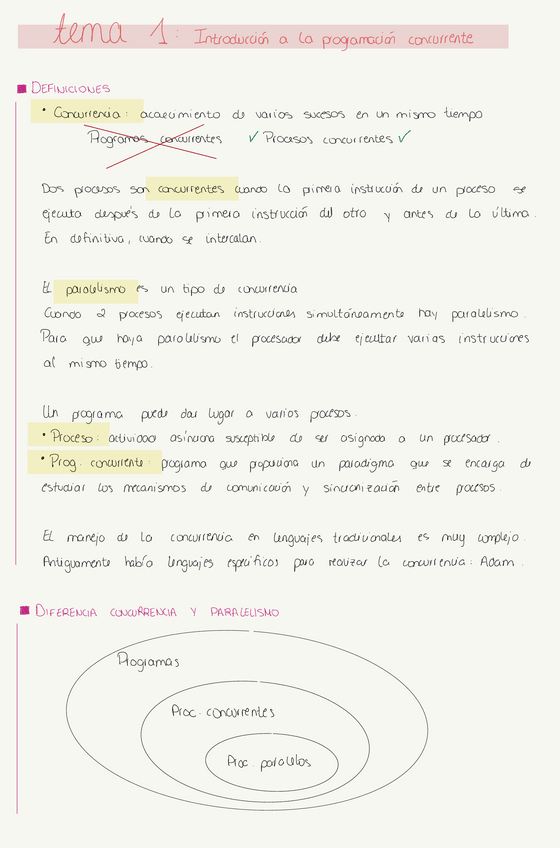 tema 1: Introducción a la programación concurrente
DEFINICIONES
• Concurrencia: acaecimiento de varios sucesos en un mismo tiempo
Programas concurrentes ✓ Procesos concurrentes ✓
Dos procesos son concurrentes cuando la primera instrucción de un proceso se
ejecuta después de la primera instrucción del otro y antes de la última.
En definitiva, cuando se intercalan.
El paralelismo es un tipo de concurrencia
Cuando 2 procesos ejecutan instrucciones simultáneamente hay paralelismo.
Para que haya paralelismo el procesador debe ejecutar varias instrucciones
al mismo tiempo.
Un programa puede dar lugar a varios procesos.
• Proceso: actividad asíncrona susceptible de ser asignada a un procesador.
• Prog. concurrente: programa que proporciona un paradigma que se encarga de
estudiar los mecanismos de comunicación y sincronización entre procesos.
El manejo de la concurrencia en lenguajes tradicionales es muy complejo.
Antiguamente había lenguajes específicos para realizar la concurrencia: Adam.
DIFERENCIA CONCURRENCIA Y PARALELISMO
Programas
Proc. concurrentes
Proc. paralelos